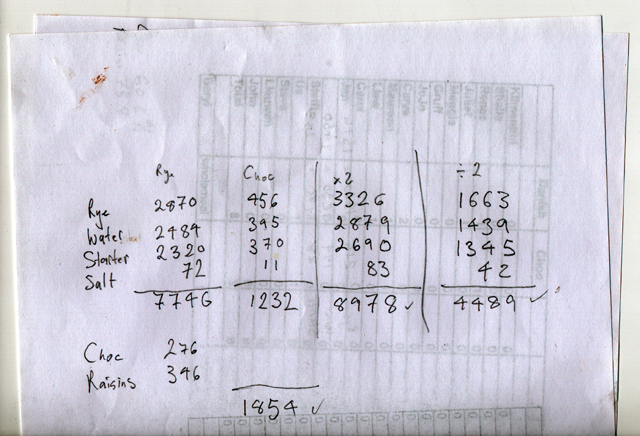 Rye Choc x2 ÷2
Rye 2870 456 3326 1663
Water 2484 395 2879 1439
Starter 2320 370 2690 1345
Salt 72 11 83 42
7746 1232 8978 ✓ 4489 ✓
Choc 276
Raisins 346
1854 ✓